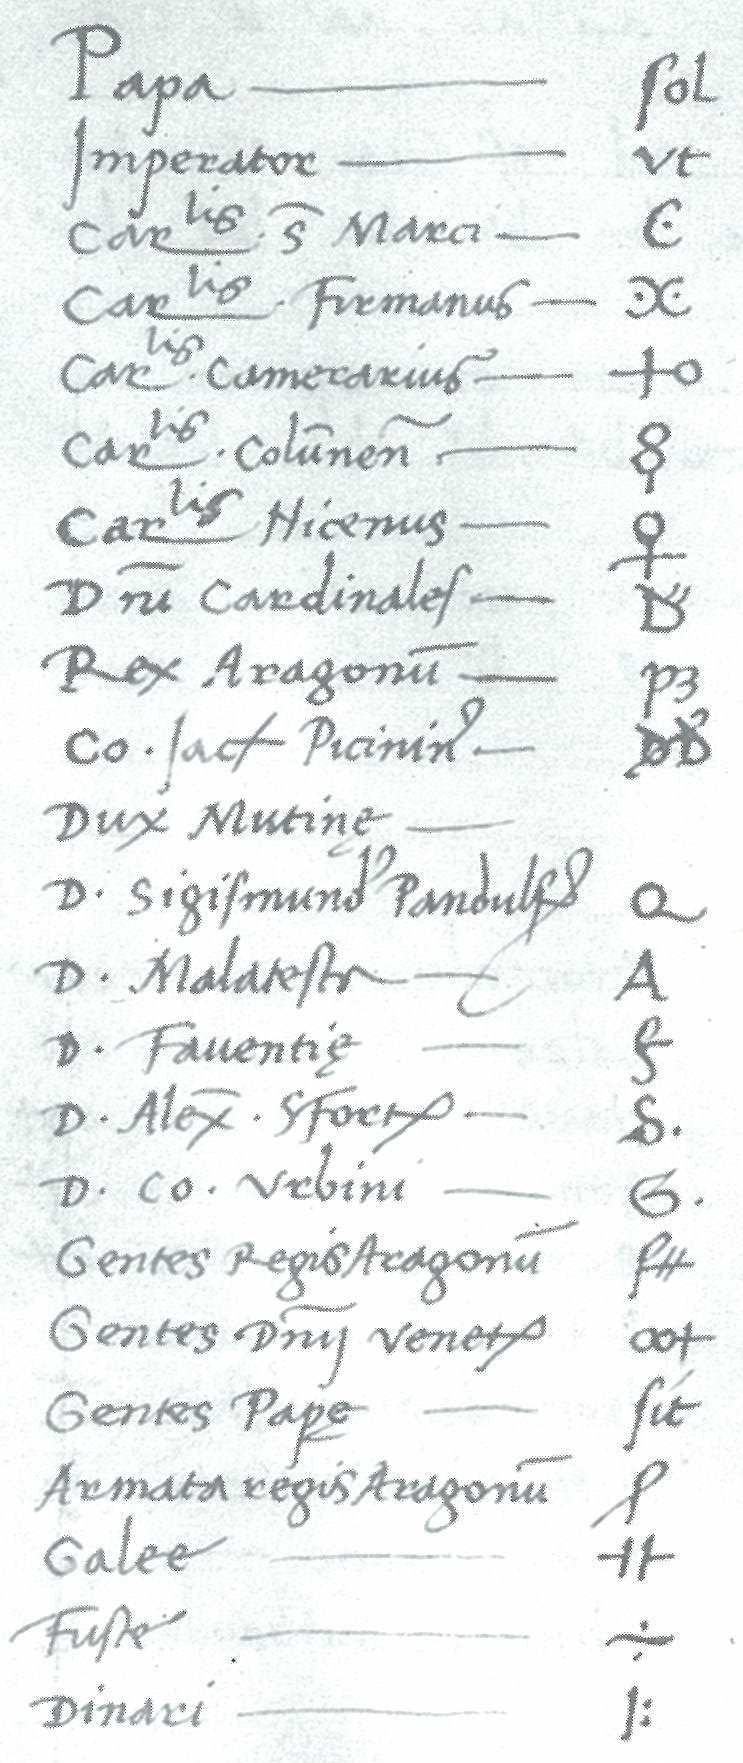 Papa — sol
Imperator — vt
Car^lis. S̄ Marci — Є
Car^lis. Firmanus —
Car^lis. Camerarius —
Car^lis. Colūnen̄ —
Car^lis Nicenus — ♀
Dn̄i Cardinales —
Rex Aragonū — pʒ
Co. Jac Picinin —
Dux Mutinę —
D. Sigismund Pandulf
D. Malatesta — A
D. Fauentię —
D. Alex̄. Sfort — S.
D. Co. Vrbini — G.
Gentes Regis Aragonū
Gentes Dn̄ij Venet
Gentes Papę — sit
Armata regis Aragonū
Galee —
Fuste — ÷
Dinari —